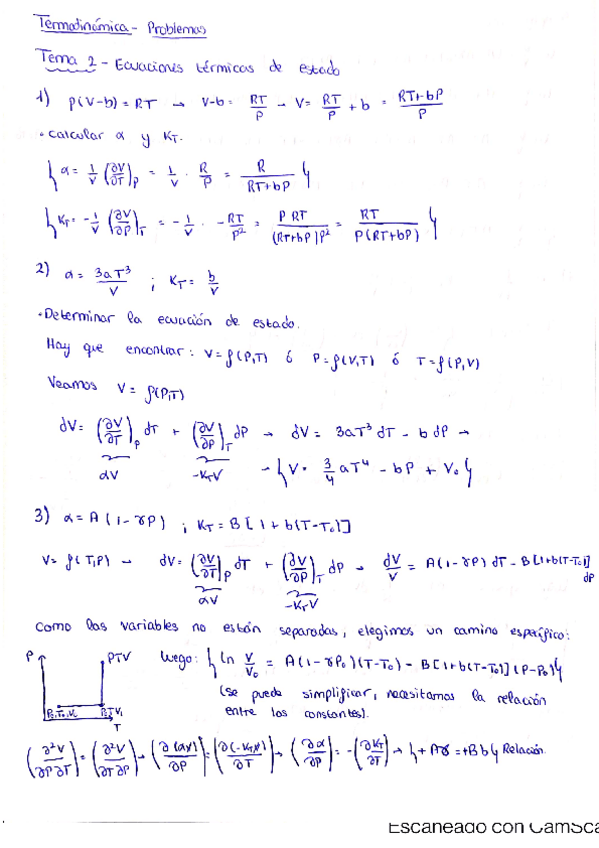 Termodinámica - Problemas
Tema 2 - Ecuaciones térmicas de estado
1) p(V-b) = RT → V-b = RT/P → V = RT/P + b = (RT+bP)/P
· calcular α y KT.
{ α = 1/V (∂V/∂T)P = 1/V · R/P = R/(RT+bP) }
{ KT = -1/V (∂V/∂P)T = -1/V · -RT/P² = P RT/((RT+bP)P²) = RT/(P(RT+bP)) }
2) α = 3aT³/V ; KT = b/V
·Determinar la ecuación de estado.
Hay que encontrar: V = f(P,T) ó P = f(V,T) ó T = f(P,V)
Veamos V = f(P,T)
dV = (∂V/∂T)P dT + (∂V/∂P)T dP → dV = 3aT³ dT - b dP →
αV -KTV → { V = 3/4 aT⁴ - bP + V₀ }
3) α = A(1-γP) ; KT = B[1+b(T-T₀)]
V = f(T,P) → dV = (∂V/∂T)P dT + (∂V/∂P)T dP → dV/V = A(1-γP) dT - B[1+b(T-T₀)] dP
αV -KTV
Como las variables no están separadas, elegimos un camino específico:
P PTV luego: { ln V/V₀ = A(1-γP₀)(T-T₀) - B[1+b(T-T₀)](P-P₀) }
(se puede simplificar, necesitamos la relación
P₀,T₀,V₀ P₀TV₁ entre las constantes).
T
(∂²V/∂P∂T) = (∂²V/∂T∂P) → (∂(αV)/∂P) = (∂(-KTV)/∂T) → (∂α/∂P) = -(∂KT/∂T) → { +Aγ = +Bb } Relación
Escaneado con CamSca